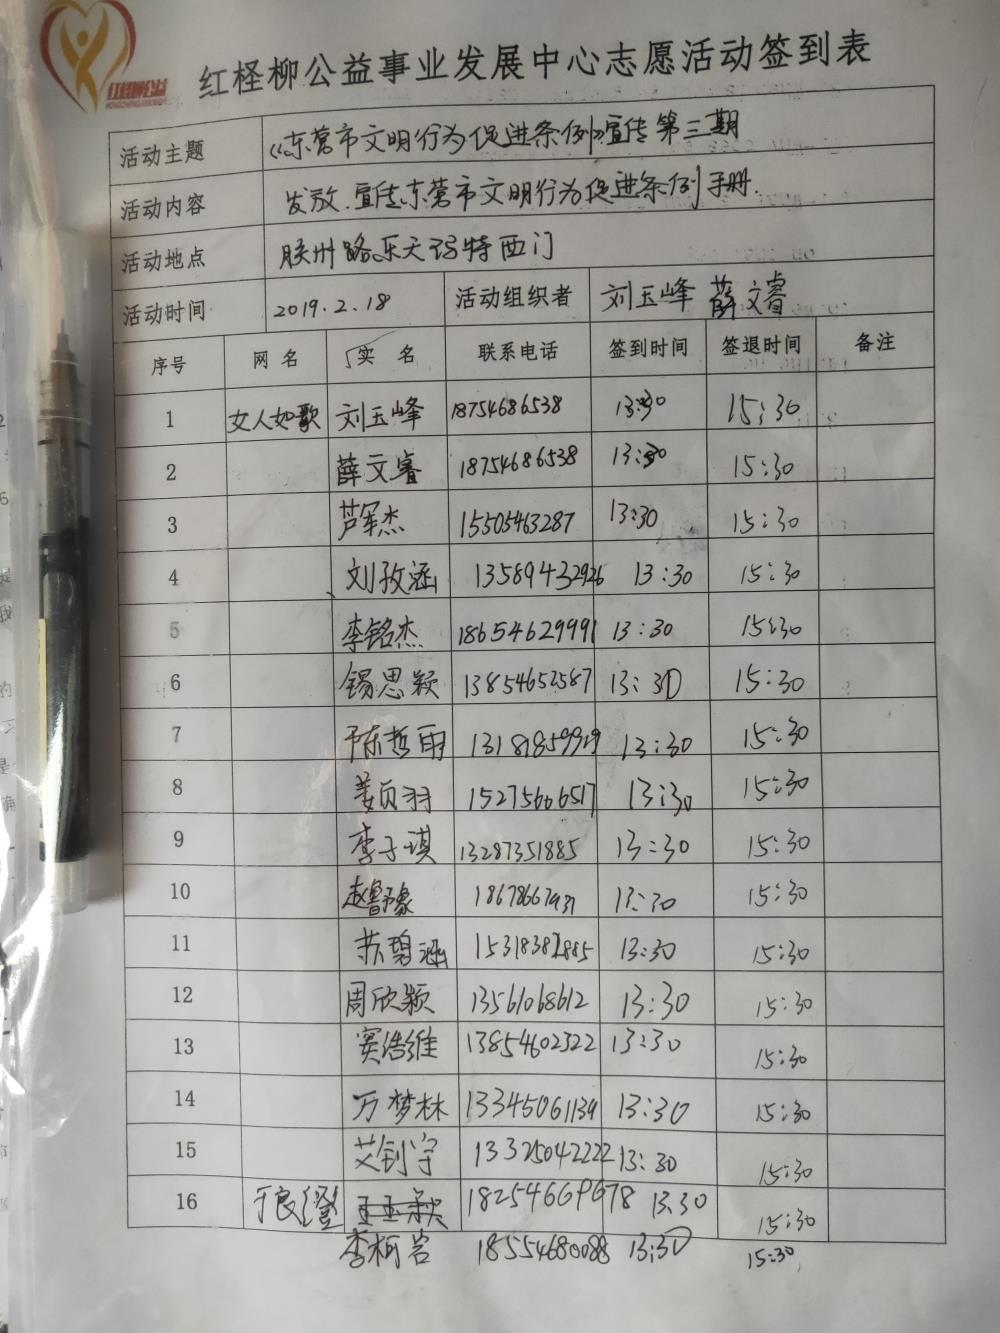 红柽柳公益
红柽柳公益事业发展中心志愿活动签到表
活动主题 《东营市文明行为促进条例》宣传第三期
活动内容 发放、宣传东营市文明行为促进条例手册.
活动地点 胶州路乐天玛特西门
活动时间 2019.2.18 活动组织者 刘玉峰 薛文睿
序号 网名 实名 联系电话 签到时间 签退时间 备注
1 女人如歌 刘玉峰 18754686538 13:30 15:30
2 薛文睿 18754686538 13:30 15:30
3 芦军杰 15505463287 13:30 15:30
4 刘孜涵 13589432926 13:30 15:30
5 李铭杰 18654629991 13:30 15:30
6 锡思颖 13854652587 13:30 15:30
7 陈哲雨 13181859919 13:30 15:30
8 姜贝羽 15275606517 13:30 15:30
9 李子琪 13287351885 13:30 15:30
10 赵鲁豫 13:30 15:30
11 苏碧涵 15318382885 13:30 15:30
12 周欣颖 13561068612 13:30 15:30
13 窦浩维 13854602322 13:30 15:30
14 万梦林 13345061139 13:30 15:30
15 艾钊宇 13325042222 13:30 15:30
16 于良澄 18254669678 13:30 15:30
李柯岩 18554680088 13:30 15:30